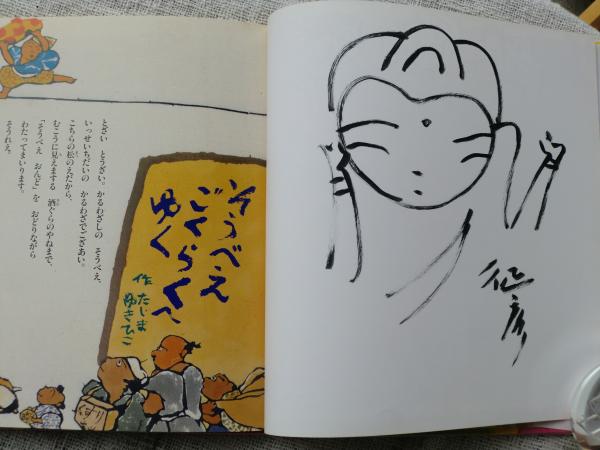 とざい とうざい。かるわざしの そうべえ、
いっせいちだいの かるわざでござあい。
こちらの松のえだから、
むこうに見えまする 酒ぐらのやねまで、
「そうべえ おんど」を おどりながら
わたってまいります。
そうれえ。
そうべえ
ごくらくへ
ゆく
作 たじま
ゆきひこ
征彦